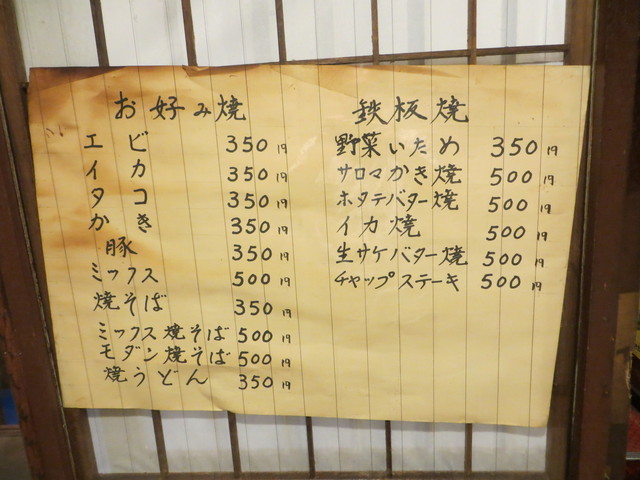 お好み焼
エビ 350円
イカ 350円
タコ 350円
かき 350円
豚 350円
ミックス 500円
焼そば 350円
ミックス焼そば 500円
モダン焼そば 500円
焼うどん 350円
鉄板焼
野菜いため 350円
サロマかき焼 500円
ホタテバター焼 500円
イカ焼 500円
生サケバター焼 500円
チャップステーキ 500円